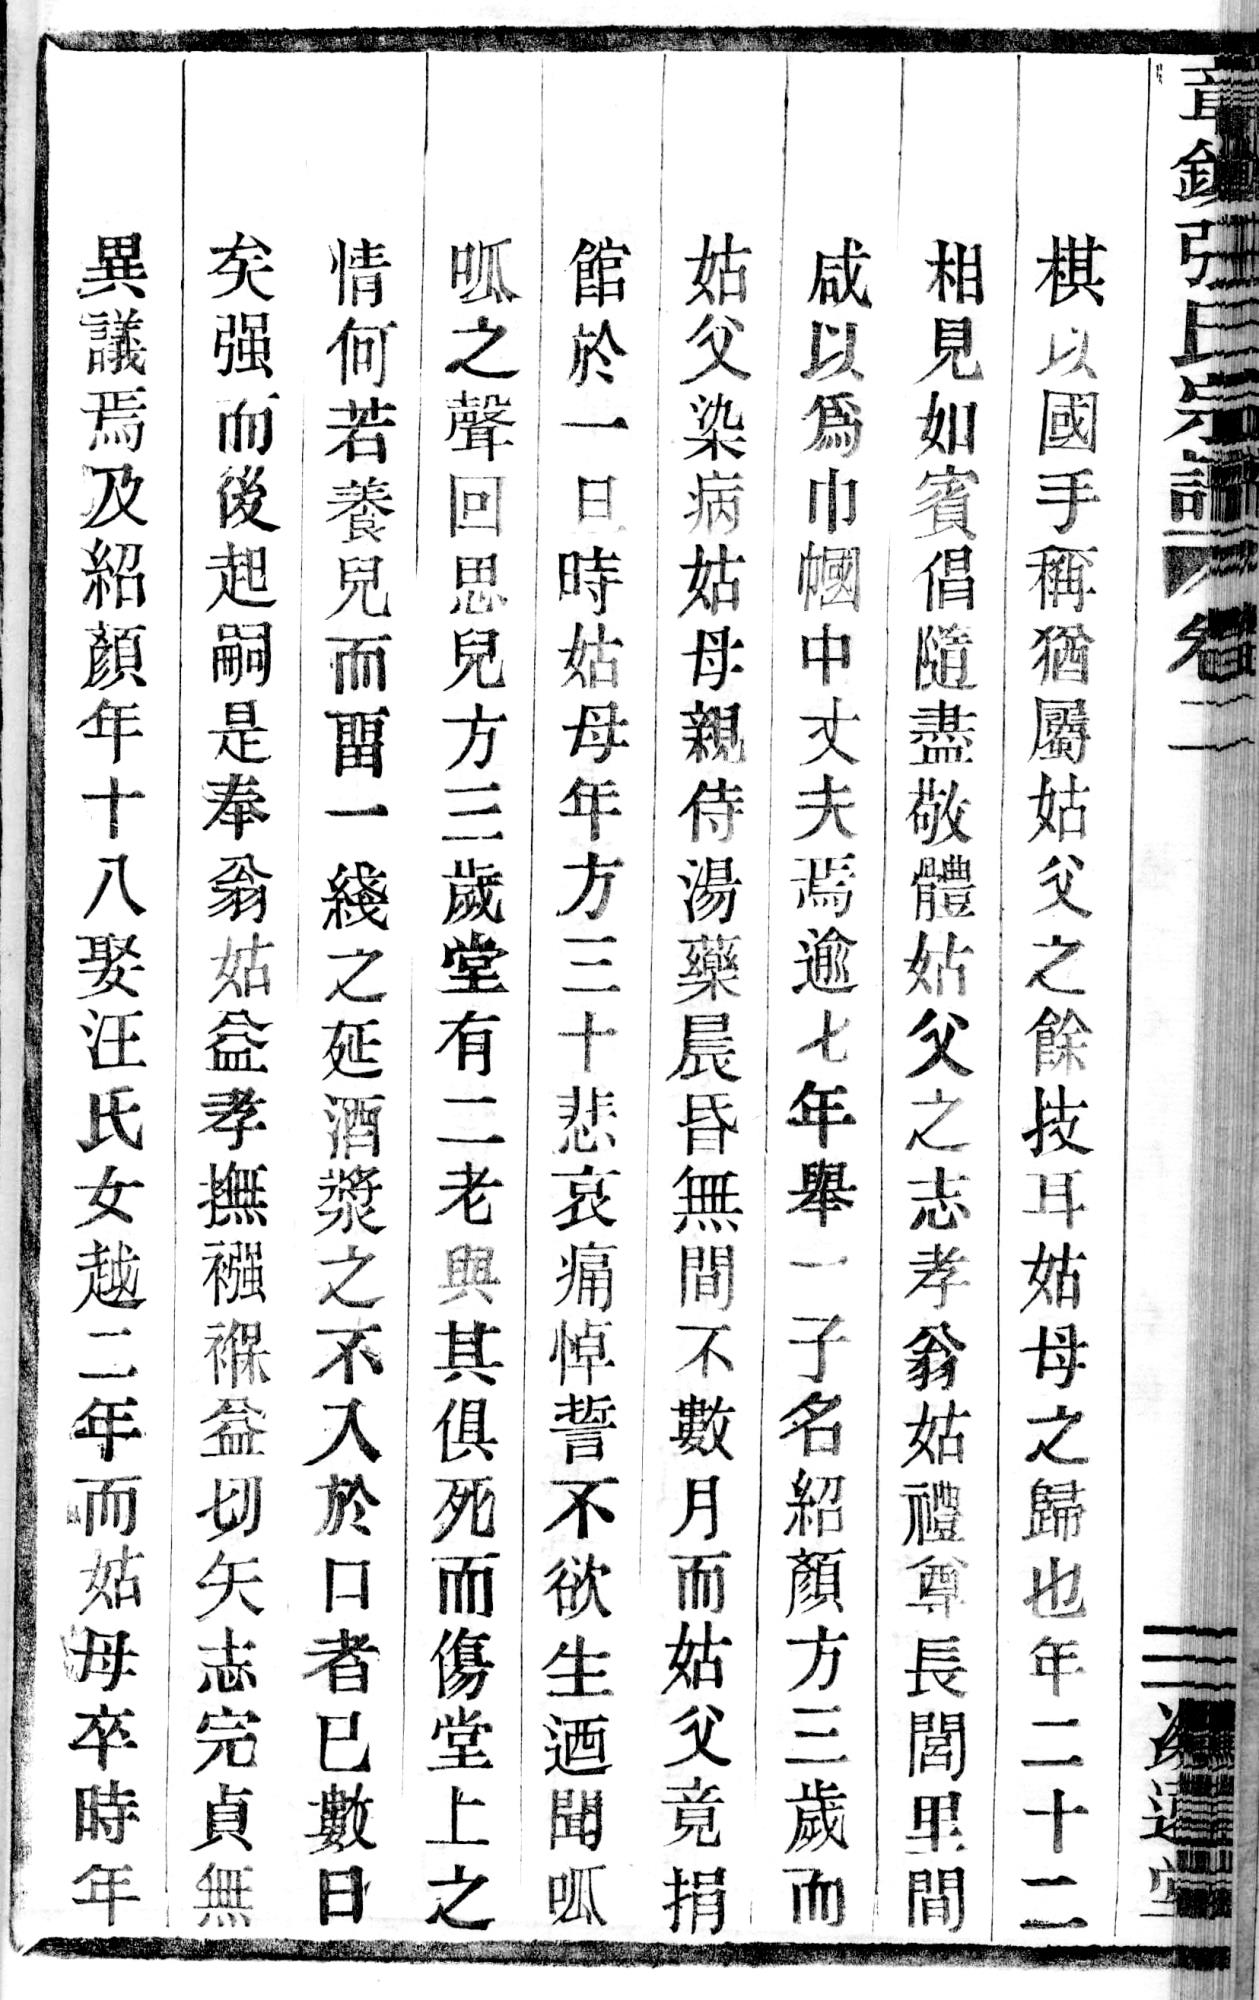 張氏宗譜 卷二
棋以國手稱猶屬姑父之餘技耳姑母之歸也年二十二
相見如賓倡隨盡敬體姑父之志孝翁姑禮尊長閭里間
咸以爲巾幗中丈夫焉逾七年舉一子名紹顏方三歲而
姑父染病姑母親侍湯藥晨昏無間不數月而姑父竟捐
館於一旦時姑母年方三十悲哀痛悼誓不欲生迺聞呱
呱之聲回思兒方三歲堂有二老與其俱死而傷堂上之
情何若養兒而畱一綫之延酒漿之不入於口者已數日
矣强而後起嗣是奉翁姑益孝撫襁褓益切矢志完貞無
異議焉及紹顏年十八娶汪氏女越二年而姑母卒時年